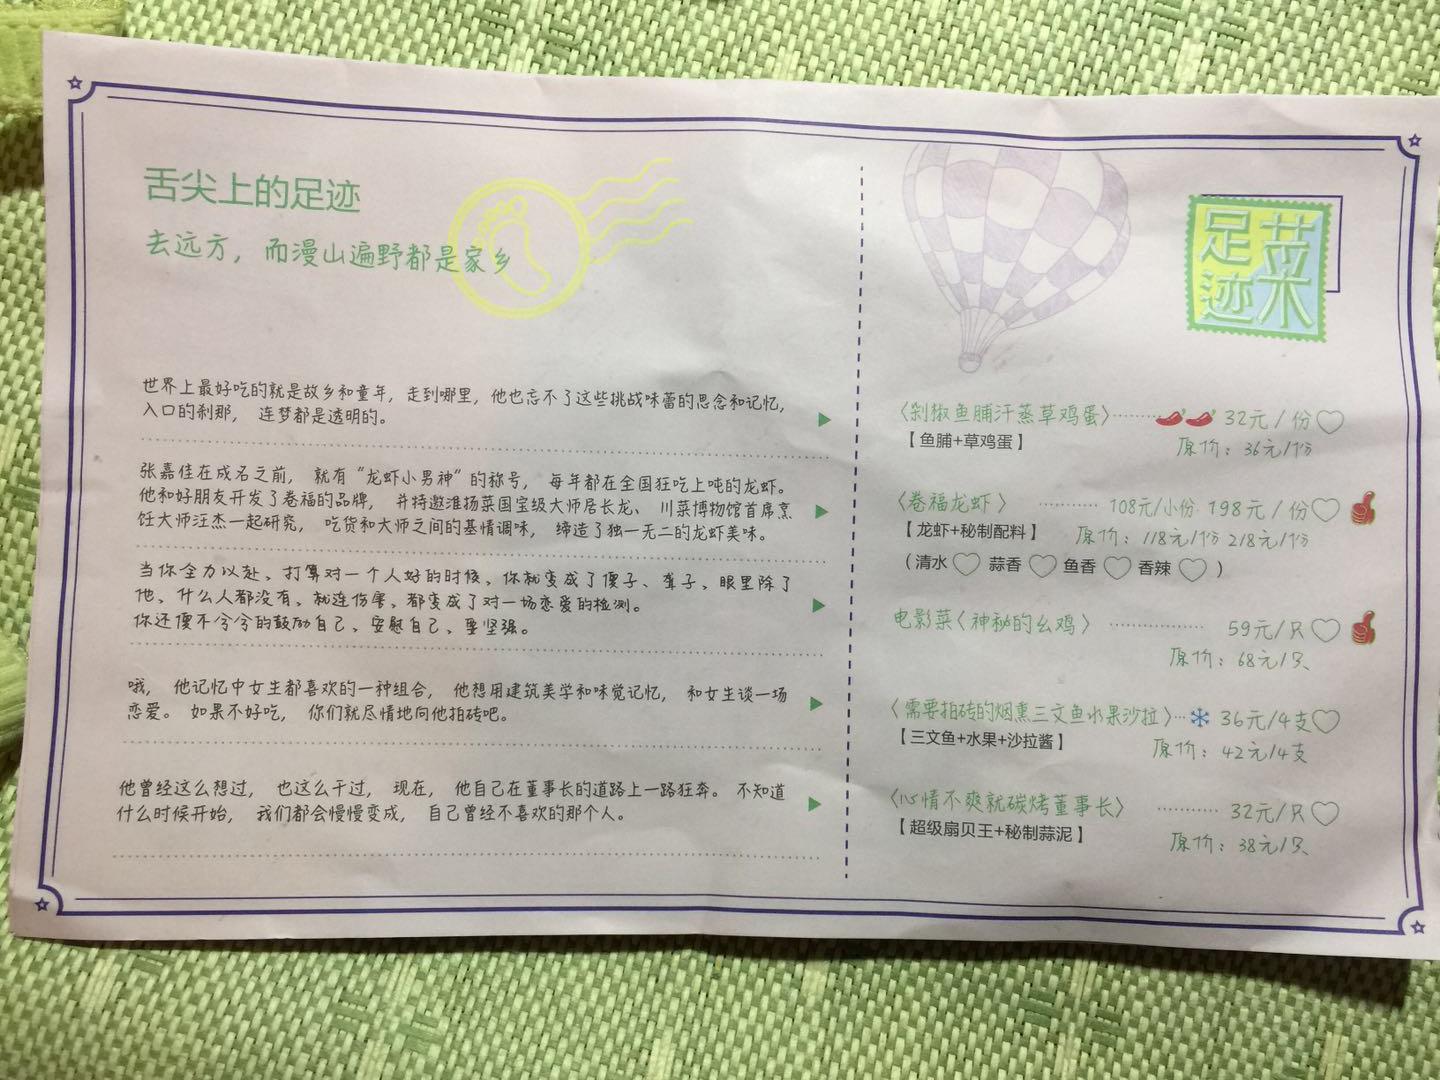 舌尖上的足迹
去远方，而漫山遍野都是家乡
世界上最好吃的就是故乡和童年，走到哪里，他也忘不了这些挑战味蕾的思念和记忆，
入口的刹那， 连梦都是透明的。
张嘉佳在成名之前， 就有“龙虾小男神”的称号， 每年都在全国狂吃上吨的龙虾。
他和好朋友开发了卷福的品牌， 并特邀淮扬菜国宝级大师居长龙、 川菜博物馆首席烹
饪大师汪杰一起研究， 吃货和大师之间的基情调味， 缔造了独一无二的龙虾美味。
当你全力以赴、打算对一个人好的时候、你就变成了傻子、聋子、眼里除了
他、什么人都没有、就连伤害、都变成了对一场恋爱的检测。
你还傻不兮兮的鼓励自己、安慰自己、要坚强。
哦， 他记忆中女生都喜欢的一种组合， 他想用建筑美学和味觉记忆， 和女生谈一场
恋爱。 如果不好吃， 你们就尽情地向他拍砖吧。
他曾经这么想过， 也这么干过， 现在， 他自己在董事长的道路上一路狂奔。 不知道
什么时候开始， 我们都会慢慢变成， 自己曾经不喜欢的那个人。
足迹菜
〈剁椒鱼脯汗蒸草鸡蛋〉 32元/份
【鱼脯+草鸡蛋】 原价：36元/份
〈卷福龙虾〉 108元/小份 198元/份
【龙虾+秘制配料】 原价：118元/份 218元/份
（清水 蒜香 鱼香 香辣 ）
电影菜〈神秘的幺鸡〉 59元/只
原价：68元/只
〈需要拍砖的烟熏三文鱼水果沙拉〉 36元/4支
【三文鱼+水果+沙拉酱】 原价：42元/4支
〈心情不爽就碳烤董事长〉 32元/只
【超级扇贝王+秘制蒜泥】 原价：38元/只